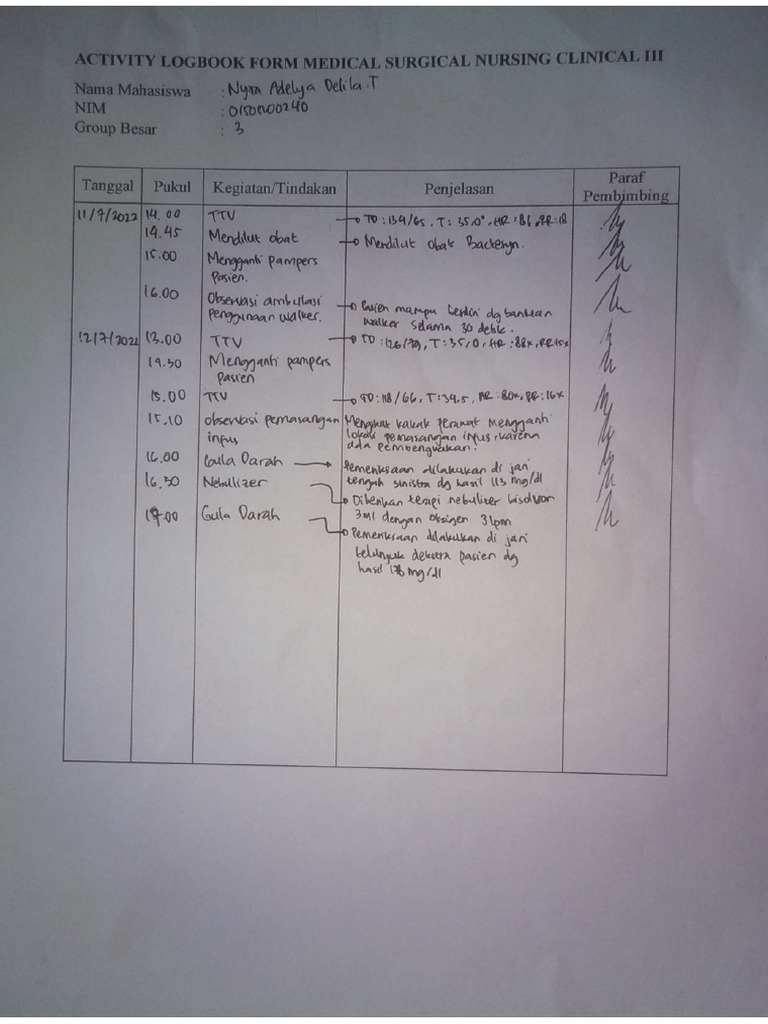 ACTIVITY LOGBOOK FORM MEDICAL SURGICAL NURSING CLINICAL III
Nama Mahasiswa : Nyra Adelya Delila.T
NIM : 01501200240
Group Besar : 3
Tanggal Pukul Kegiatan/Tindakan Penjelasan Paraf Pembimbing
11/7/2022 14.00 TTV TD: 134/65, T: 35,0°, HR: 86, RR: 18
14.45 Mendilut obat Mendilut obat Bactesyn.
15.00 Mengganti pampers
Pasien.
16.00 Observasi ambulasi Pasien mampu berdiri dg bantuan
penggunaan walker. walker selama 30 detik.
12/7/2022 13.00 TTV TD: 126/70, T: 35,0, HR: 88x, RR:
14.30 Mengganti pampers
pasien
15.00 TTV TD: 118/66, T: 34.5, HR: 80x, RR: 16x
15.10 Observasi pemasangan Mengikuti kakak perawat mengganti
infus lokasi pemasangan infus, karena
ada pembengkakan.
16.00 Gula Darah Pemeriksaan dilakukan di jari
tengah sinistra dg hasil 113 mg/dl
16.30 Nebulizer Diberikan terapi nebulizer bisolvon
3ml dengan oksigen 3 lpm
17.00 Gula Darah Pemeriksaan dilakukan di jari
telunjuk dekstra pasien dg
hasil 178 mg/dl